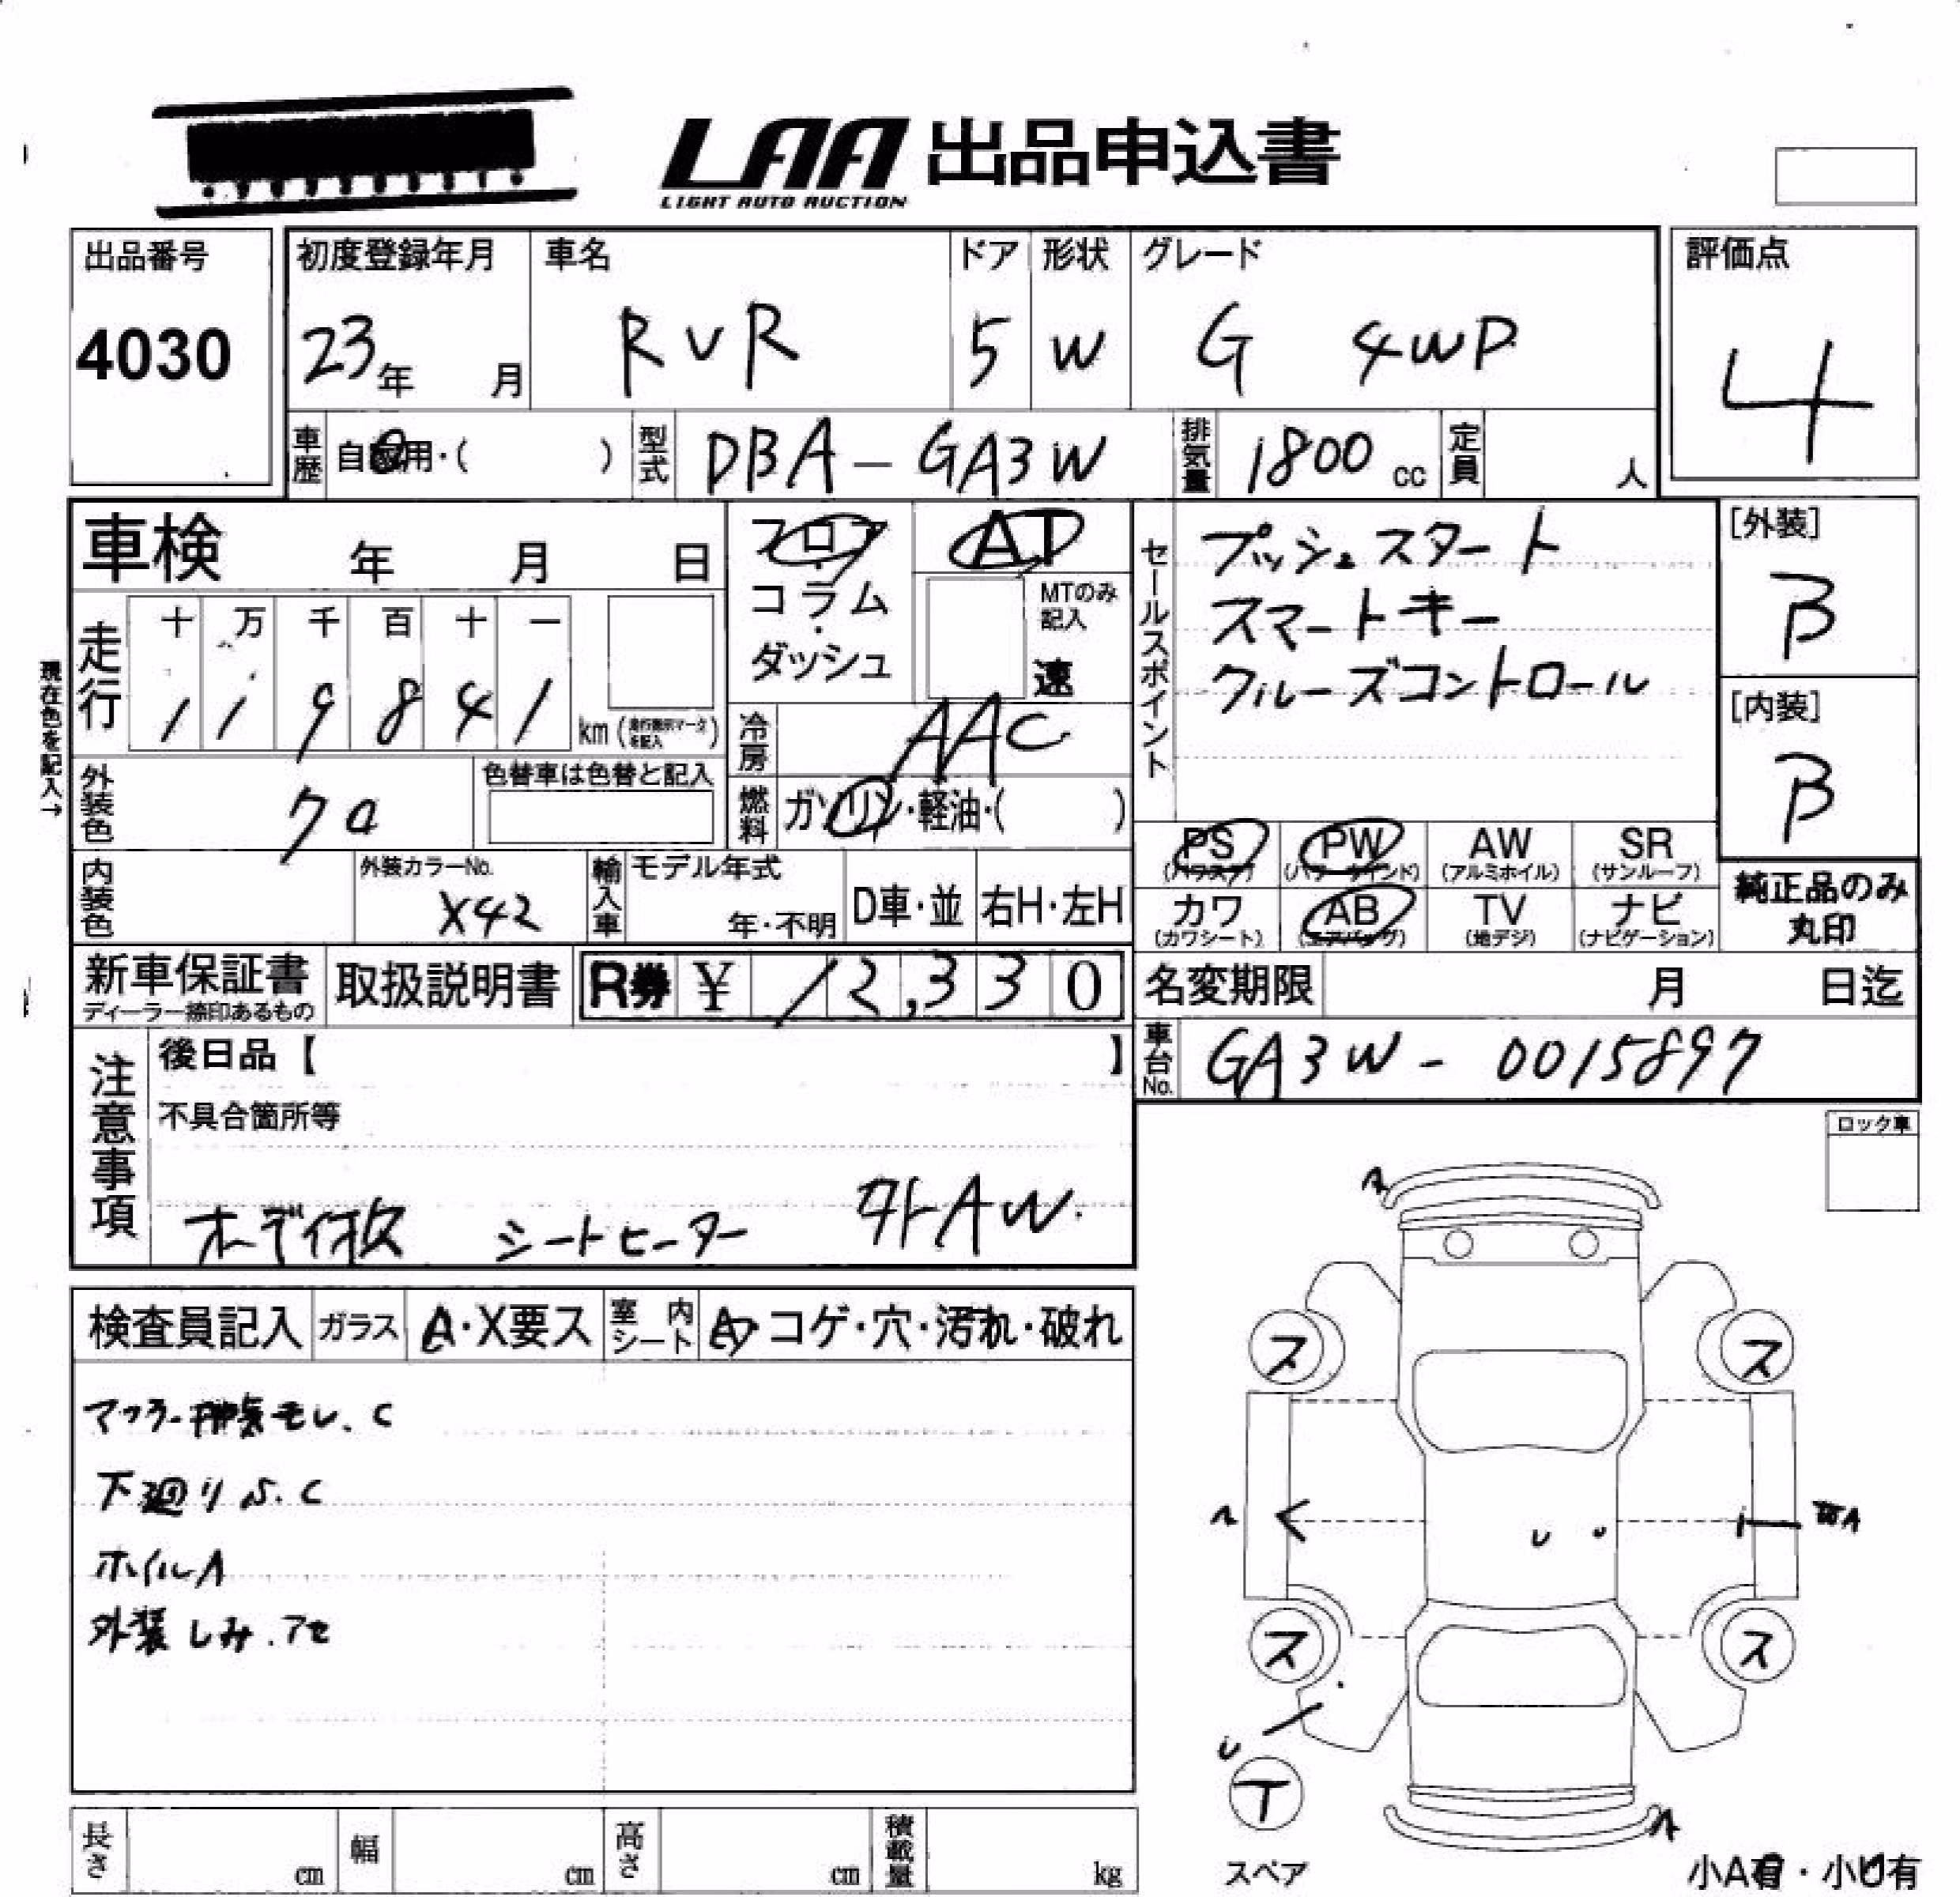 LAA 出品申込書
LIGHT AUTO AUCTION
出品番号
4030
初度登録年月
23年 月
車名
RVR
ドア
5
形状
W
グレード
G 4WD
評価点
4
車歴
自家用・( )
型式
DBA-GA3W
排気量
1800 cc
定員
人
車検 年 月 日
フロア・コラム・ダッシュ
AT
MTのみ記入
速
セールスポイント
プッシュスタート
スマートキー
クルーズコントロール
[外装]
B
[内装]
B
現在色を記入→
走行
十 万 千 百 十 一
1 1 9 8 4 1 km (走行表示マークを記入)
冷房
AAC
外装色
クロ
色替車は色替と記入
燃料
ガソリン・軽油・( )
PS AW SR
(パワステ)
PW
(パワーウインド)
(アルミホイル)
(サンルーフ)
カワ
(カワシート)
AB
(エアバッグ)
TV
(地デジ)
ナビ
(ナビゲーション)
純正品のみ
丸印
内装色
外装カラーNo.
X42
輸入車
モデル年式
年・不明
D車・並
右H・左H
新車保証書
ディーラー捺印あるもの
取扱説明書
R券 ¥ 12,330
名変期限 月 日迄
車台No.
GA3W-0015897
注意事項
後日品【 】
不具合箇所等
シートヒーター 外AW.
ロック車
検査員記入
ガラス
A・X要ス
室内シート
A・コゲ・穴・汚れ・破れ
マフラー排気モレ.C
下廻りS.C
ホイルA
外装しみ.アセ
ス
ス
A
U
ス
ス
U
T
スペア
小A有・小U有
長さ cm
幅 cm
高さ cm
積載量 kg